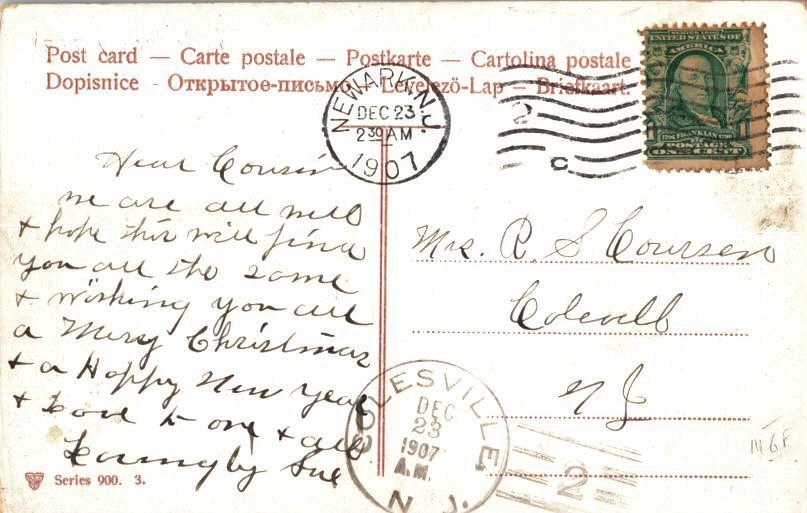 Post card — Carte postale — Postkarte — Cartolina postale
Dopisnice - Открытое-письмо - Levelező-Lap — Briefkaart.
NEWARK, N.J.
DEC 23
2 30 AM
1907
2
C
SERIES 1902
UNITED STATES OF
AMERICA
FRANKLIN
POSTAGE
ONE CENT
Dear Cousin
we are all well
+ hope this will find
you all the same
+ wishing you all
a Mery Christmas
+ a Happy New Year
+ Love to one + all
Lovingly Sue
Mrs. R. S Coursen
Colevill
N J
COLESVILLE
DEC
23
1907
A.M.
N. J.
2
Series 900. 3.